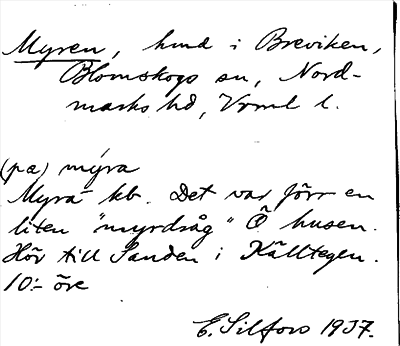 Myren, hmd i Breviken,
Blomskogs sn, Nord-
marks hd, Vrml l.
(pa) myra
Myra- kb. Det var förr en
liten "myrdråg" Ö husen.
Hör till Sanden i Källtegen.
10:- öre
E. Silfors 1937.